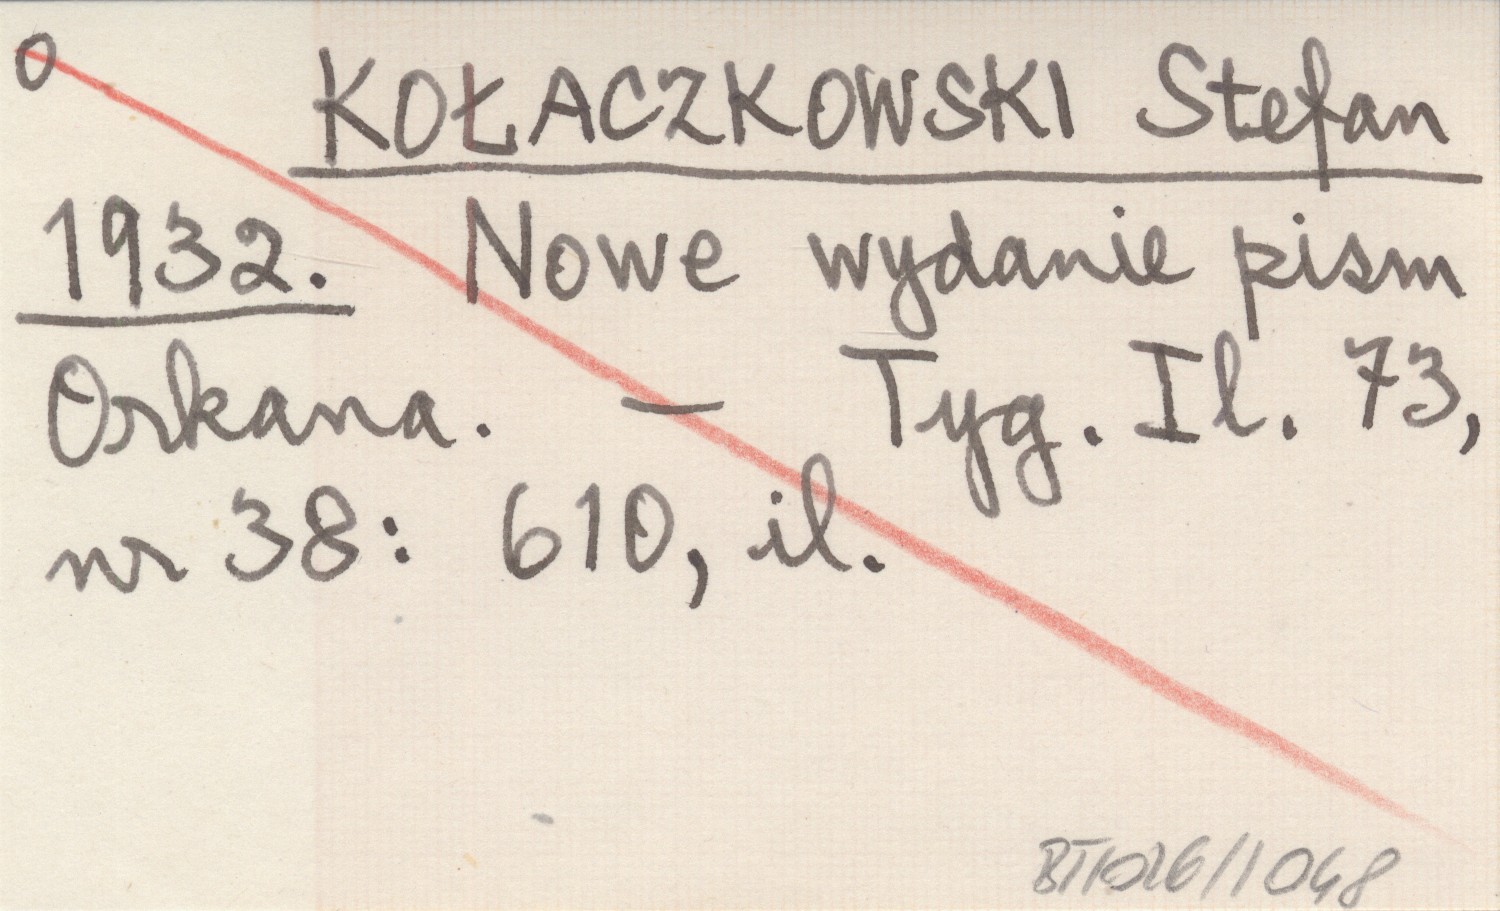 O KOŁACZKOWSKI Stefan
1932. Nowe wydanie pism
Orkana. — Tyg. Il. 73,
nr 38: 610, il.